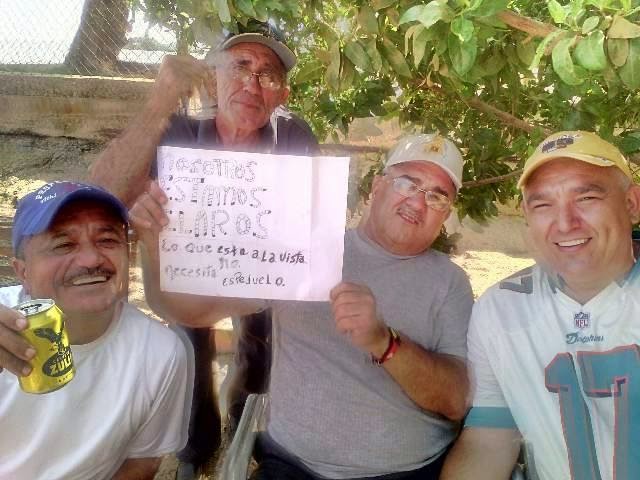 NOSOTROS
ESTAMOS
CLAROS
Lo que esta a la vista
No.
Necesita espejuelo.
ZULIA
NFL
Dolphins
17